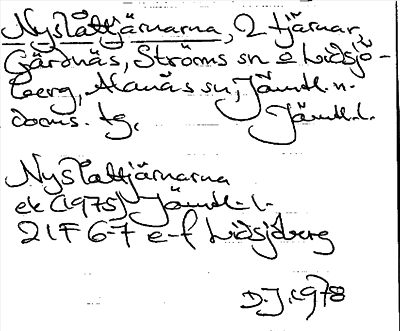 Nyslåttjärnarna, 2 tjärnar,
Gärdnäs, Ströms sn o Lidsjö-
berg, Alanäs sn, Jämtl. n.
doms. tg, Jämtl.l.
Nyslåttjärnarna
ek (1975) Jämtl. l.
21F 6-7 e-f Lidsjöberg
D.J. 1978